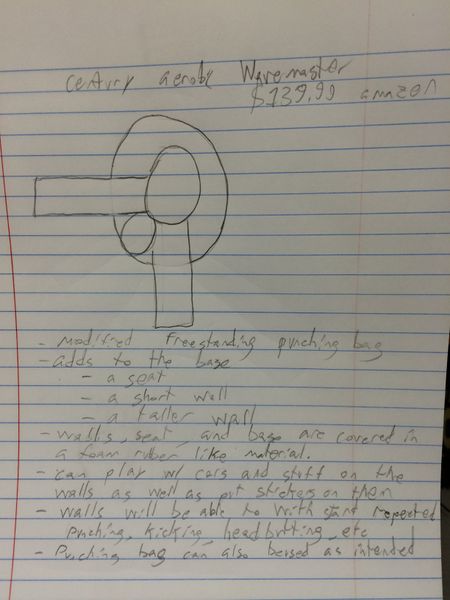 Century aerobic Wavemaster
$139.99 amazon
- Modified freestanding punching bag
- adds to the base
- a seat
- a short wall
- a taller wall
- walls, seat, and base are covered in
a foam ruber like material.
- can play w/ cars and stuff on the
walls as well as put stickers on them
- walls will be able to with start repeated
punching, kicking, headbutting, etc
- Punching bag can also be used as intended